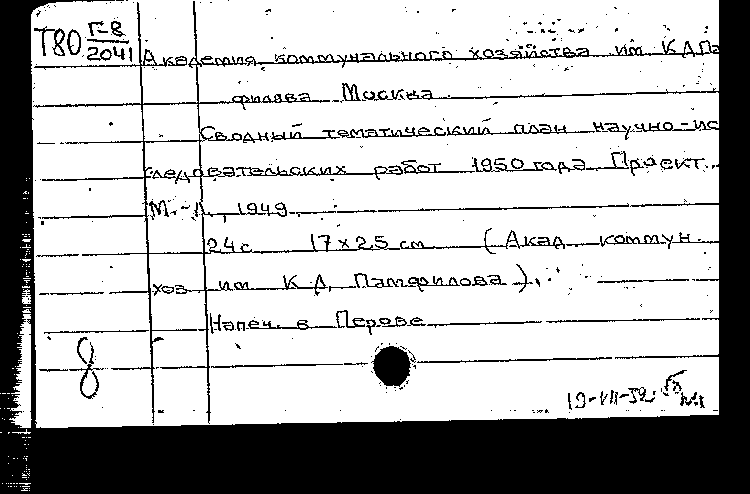 Т80 Г-8
2041
Академия коммунального хозяйства им К Д Па
филова Москва
Сводный тематический план научно-ис
следовательских работ 1950 года Проект.
М.-Л., 1949.
24с 17×25 см (Акад. коммун.
хоз им К Д Памфилова).
Напеч. в Перове
8
19-VII-52